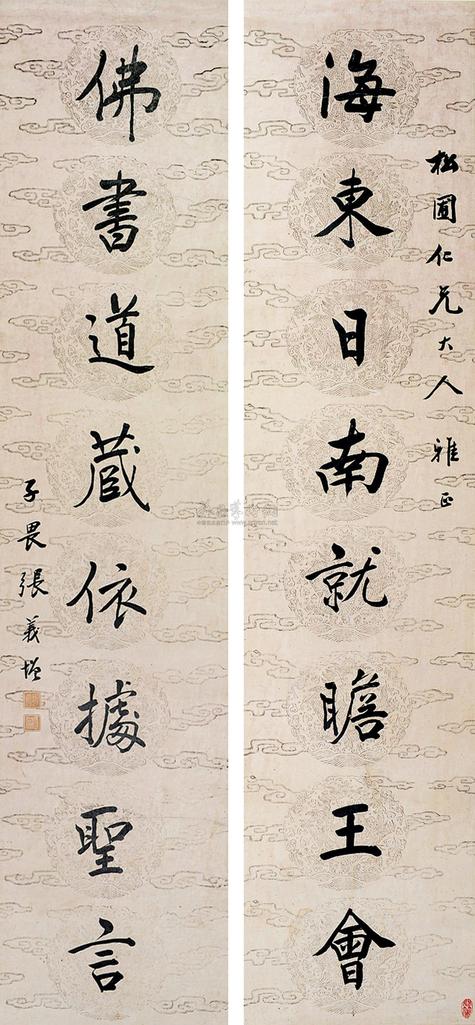 松圃仁兄大人雅正
海東日南就瞻王會
佛書道蔵依據聖言
子畏張義